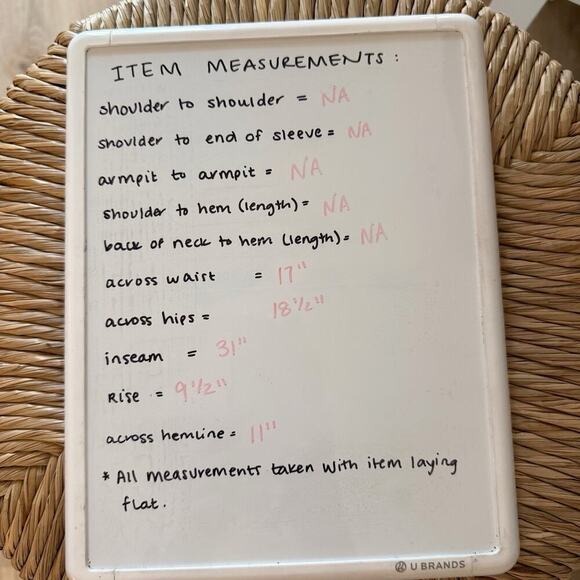 ITEM MEASUREMENTS :
shoulder to shoulder = NA
shoulder to end of sleeve = NA
armpit to armpit = NA
shoulder to hem (length) = NA
back of neck to hem (length) = NA
across waist = 17"
across hips = 18 1/2"
inseam = 31"
Rise = 9 1/2"
across hemline = 11"
* All measurements taken with item laying
flat.
U BRANDS